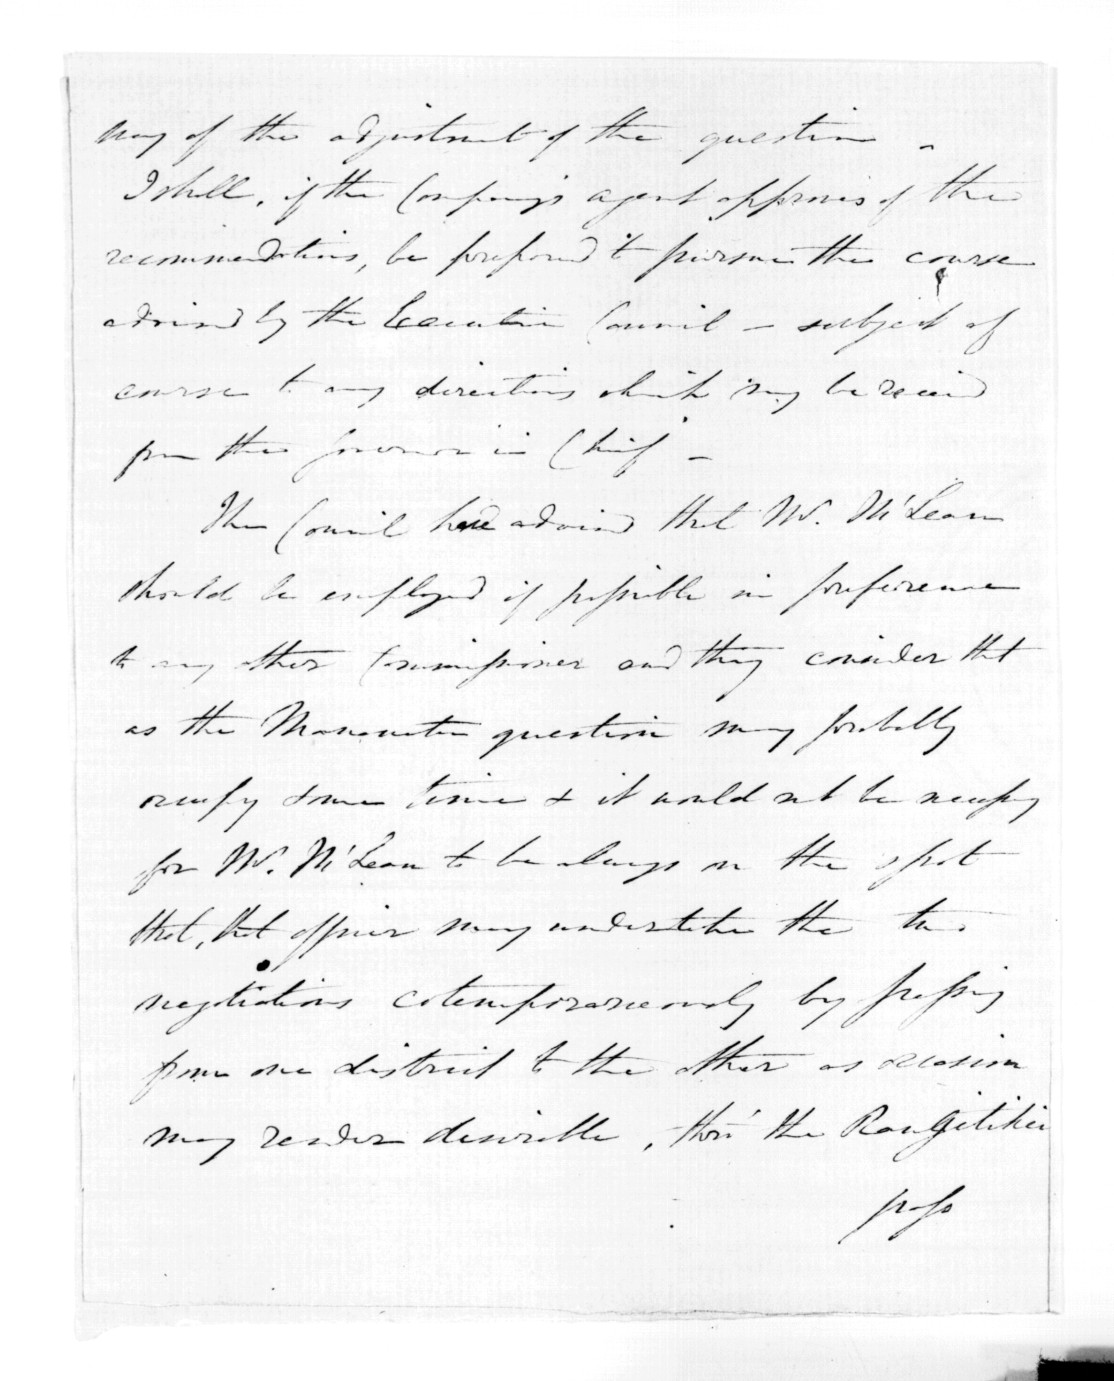 way of the adjustment of the question -
I shall, if the Company's agent approves of the
recommendations, be prepared to pursue the course
advised by the Executive Council - subject of
course to any directions which may be received
from the Governor in Chief -
The Council have advised that Mr. McLean
should be employed if possible in preference
to any other Commissioner and they consider that
as the Manawatu question may probably
occupy some time & it would not be necessary
for Mr. McLean to be always on the spot
that, that officer may undertake the two
negotiations cotemporaneously by passing
from one district to the other as occasion
may render desirable, tho' the Rangitikei